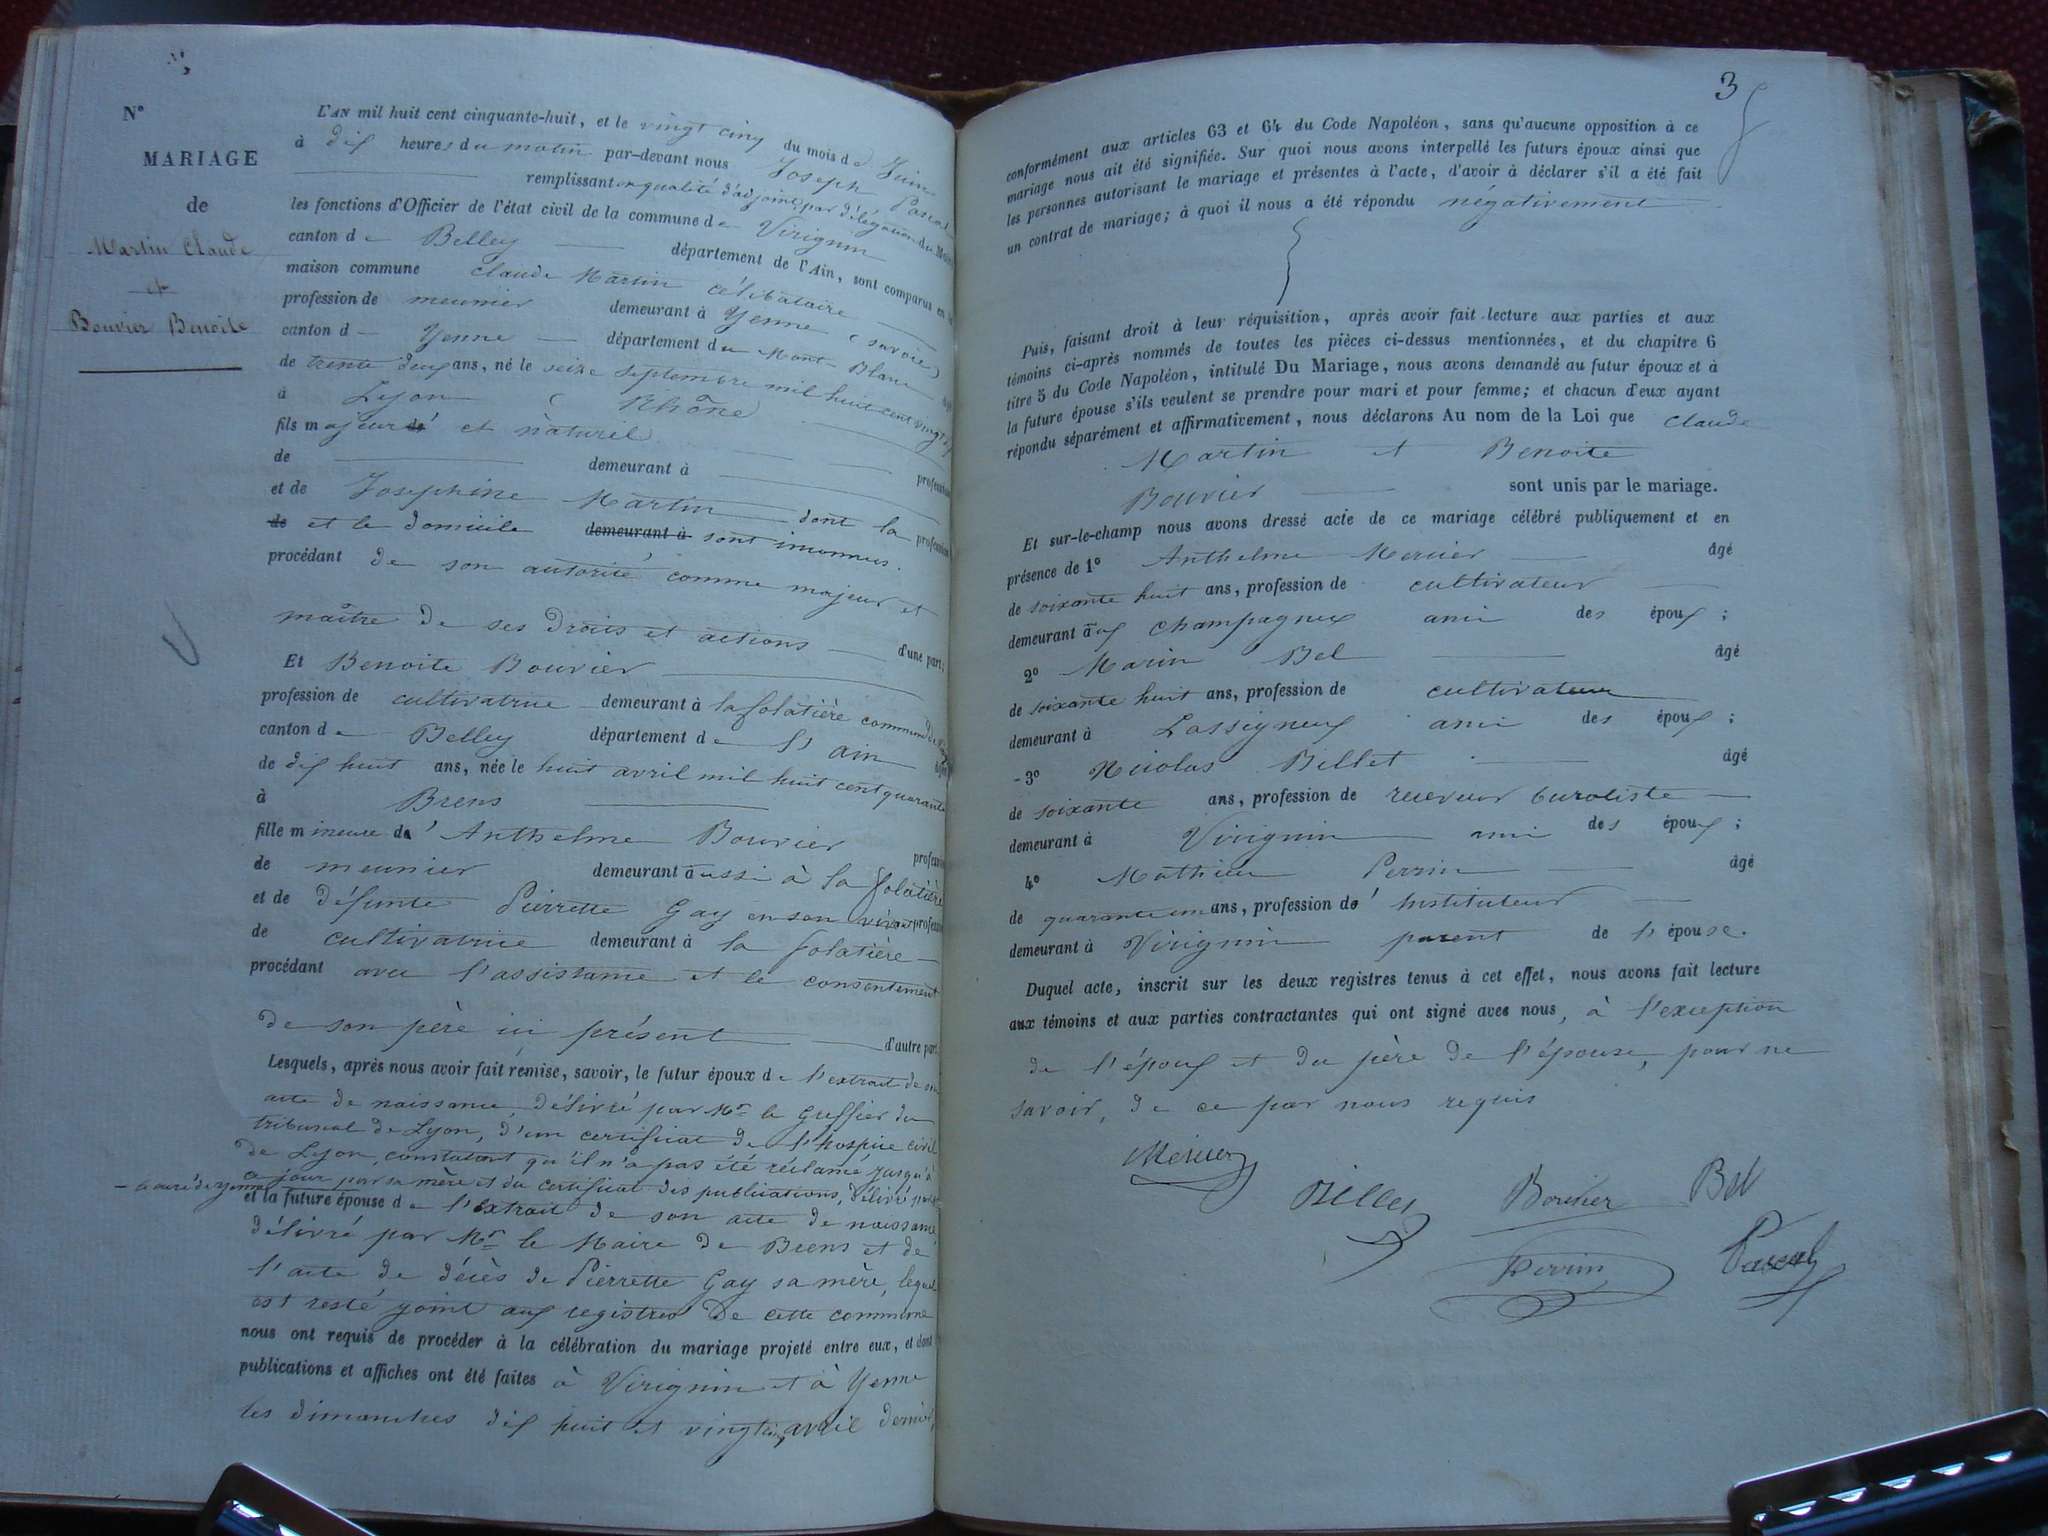 N°
MARIAGE
de
Martin Claude
et
Bouvier Benoite
L'AN mil huit cent cinquante-huit, et le vingt cinq du mois de Juin
à dix heures du matin par-devant nous Joseph Pascal
remplissant en qualité d'adjoint, par délégation du Maire
les fonctions d'Officier de l'état civil de la commune de Virignin
canton de Belley département de l'Ain, sont comparus en la
maison commune Claude Martin célibataire
profession de meunier demeurant à Yenne (savoie)
canton d Yenne département du Mont-Blanc âgé
de trente deux ans, né le seize septembre mil huit cent vingt
à Lyon (Rhône
fils majeur de et naturel
de demeurant à profession
et de Josephine Martin dont la profession
de et le domicile demeurant à sont inconnus.
procédant de son autorité comme majeur et
maître de ses droits et actions d'une part;
Et Benoite Bouvier
profession de cultivatrice demeurant à la folatière commune de
canton de Belley département de l'ain âgée
de dix huit ans, née le huit avril mil huit cent quarante
à Brens
fille mineure d'Anthelme Bouvier profession
de meunier demeurant aussi à la folatière
et de défunte Pierrette Gay en son vivant profession
de cultivatrice demeurant à la folatière
procédant avec l'assistance et le consentement
de son père ici présent d'autre part.
Lesquels, après nous avoir fait remise, savoir, le futur époux de l'extrait de son
acte de naissance, délivré par Mr le Greffier du
tribunal de Lyon, d'un certificat de l'hospice civil
de Lyon, constatant qu'il n'a pas été réclamé jusqu'à
ce jour par sa mère et du certificat des publications, délivré par
- le curé de Yenne
et la future épouse de l'extrait de son acte de naissance
délivré par Mr le Maire de Brens et de
l'acte de décès de Pierrette Gay sa mère, lequel
est resté joint aux registres de cette commune
nous ont requis de procéder à la célébration du mariage projeté entre eux, et dont
publications et affiches ont été faites à Virignin et à Yenne
les dimanches dix huit et vingt cinq avril dernier,
3
conformément aux articles 63 et 64 du Code Napoléon, sans qu'aucune opposition à ce
mariage nous ait été signifiée. Sur quoi nous avons interpellé les futurs époux ainsi que
les personnes autorisant le mariage et présentes à l'acte, d'avoir à déclarer s'il a été fait
un contrat de mariage; à quoi il nous a été répondu négativement
Puis, faisant droit à leur réquisition, après avoir fait lecture aux parties et aux
témoins ci-après nommés de toutes les pièces ci-dessus mentionnées, et du chapitre 6
titre 5 du Code Napoléon, intitulé Du Mariage, nous avons demandé au futur époux et à
la future épouse s'ils veulent se prendre pour mari et pour femme; et chacun d'eux ayant
répondu séparément et affirmativement, nous déclarons Au nom de la Loi que Claude
Martin et Benoite
Bouvier sont unis par le mariage.
Et sur-le-champ nous avons dressé acte de ce mariage célébré publiquement et en
présence de 1° Anthelme Mercier âgé
de soixante huit ans, profession de cultivateur
demeurant aux Champagneux ami des époux;
2° Marin Bel âgé
de soixante huit ans, profession de cultivateur
demeurant à Lassigneux ami des époux;
3° Nicolas Billet âgé
de soixante ans, profession de receveur buraliste
demeurant à Virignin ami des époux;
4° Mathieu Perrin âgé
de quarante un ans, profession d'Instituteur
demeurant à Virignin parent de l'épouse.
Duquel acte, inscrit sur les deux registres tenus à cet effet, nous avons fait lecture
aux témoins et aux parties contractantes qui ont signé avec nous, à l'exception
de l'époux et du père de l'épouse, pour ne
savoir, de ce par nous requis
Mercier
Billet Bouvier Bel
Perrin Pascal